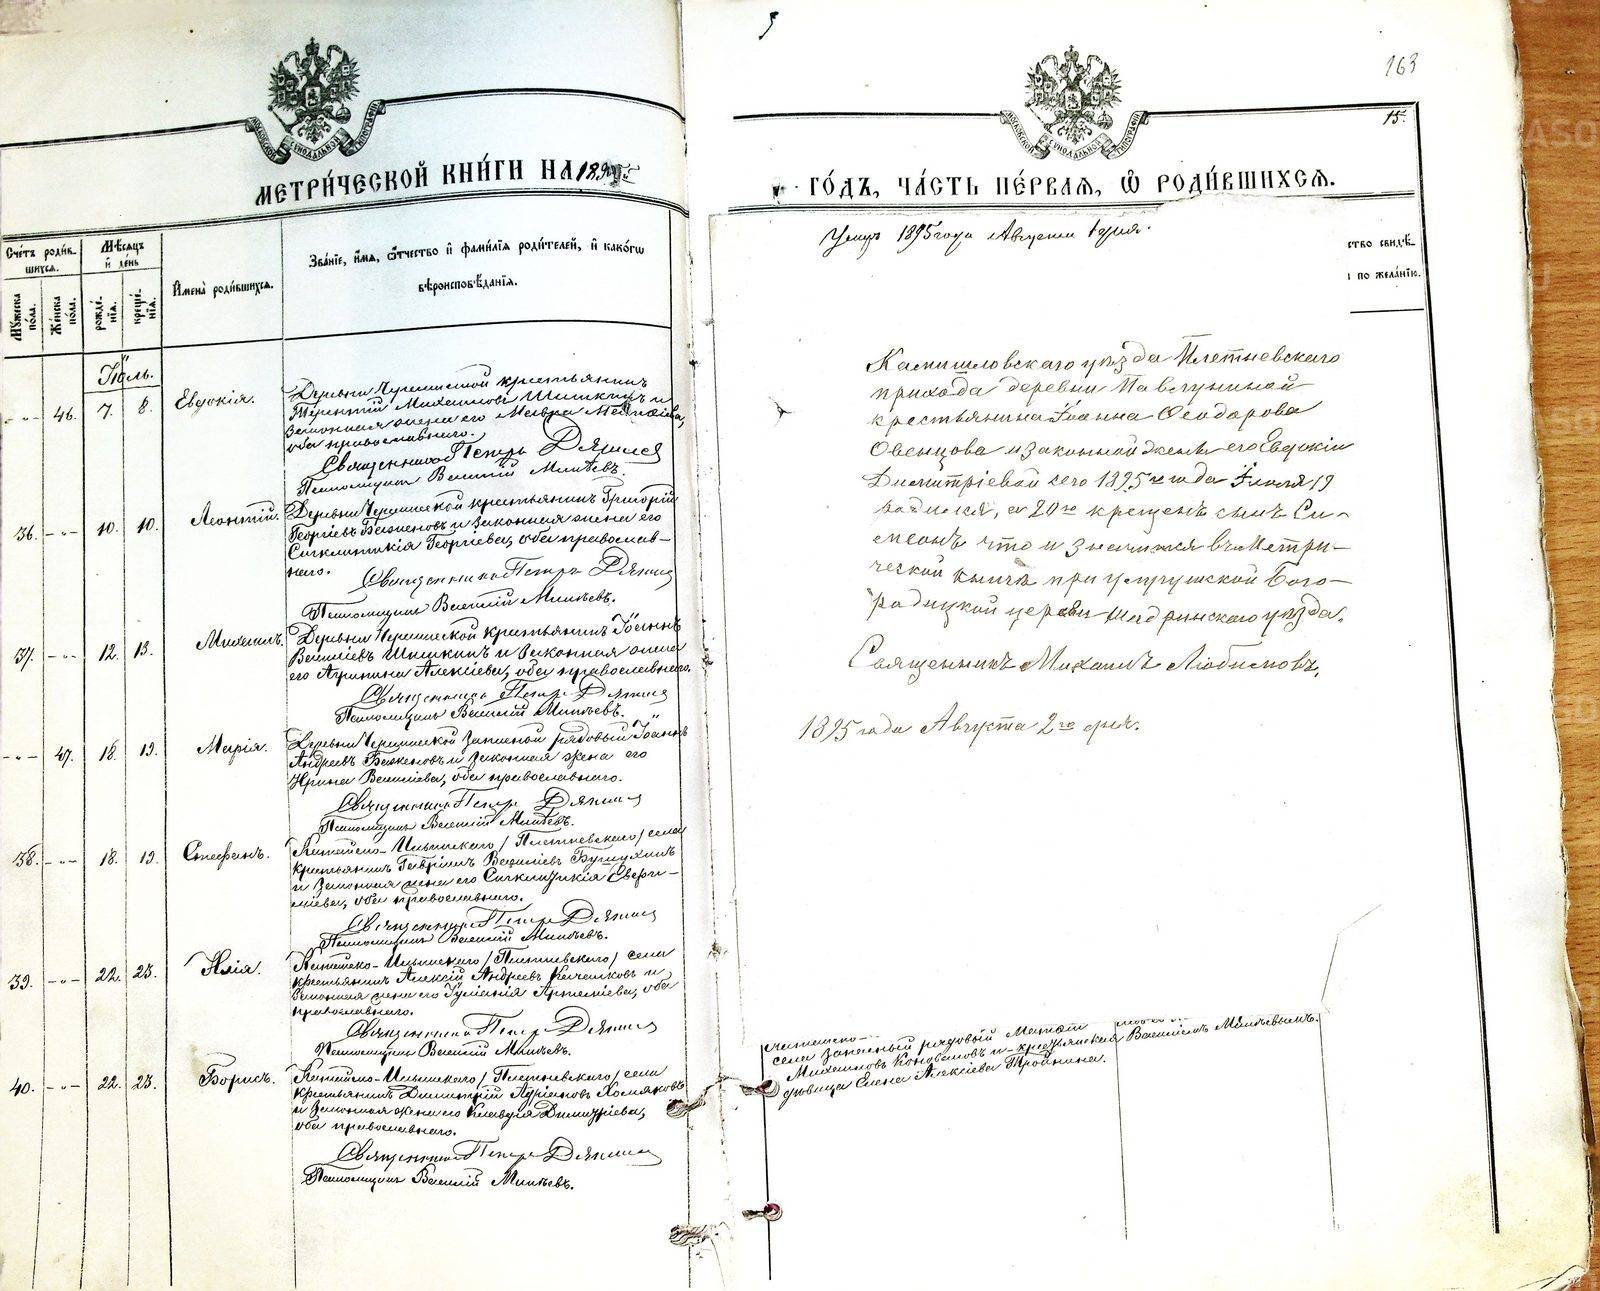 163
15.
МЕТРИ́ЧЕСКОЙ КНИ́ГИ НА 1895
ГО́ДЪ, ЧА́СТЬ ПЕ́РВАЯ, Ѡ РОДИ́ВШИХСЯ.
Сче́тъ роди́в-
шихся.
Мѣ́сяцъ
и҆ де́нь
Му́жеска
по́ла.
Же́нска
по́ла.
рожде́-
нїя.
креще́-
нїя.
И҆мена̀ роди́вшихся.
Зва́нїе, и҆́мя, ѻ҆́тчество и҆ фами́лїя роди́телей, и҆ како́гѡ
вѣроисповѣ́данїя.
Іюль.
46. 7. 8. Евдокія.
Деревни Черемисской крестьянинъ
Терентій Михаиловъ Шишкинъ и
законная жена его Мавра
оба православнаго.
Священникъ Петръ Дягилев
Псаломщикъ Василій Михѣевъ.
36. 10. 10. Леонтій.
Деревни Черемисской крестьянинъ Григорій
Георгіевъ Баженовъ и законная жена его
Сигклитикія Георгіева, оба православ-
наго.
Священникъ Петръ Дягилев
Псаломщикъ Василій Михѣевъ.
37. 12. 13. Михаилъ.
Деревни Черемисской крестьянинъ Іоаннъ
Василіевъ Шишкинъ и законная жена
его Агрипина Алексіева, оба православнаго.
Священникъ Петръ Дягилев
Псаломщикъ Василій Михѣевъ.
47. 18. 19. Марія.
Деревни Черемисской запасной рядовый Іоаннъ
Андреевъ Баженовъ и законная жена его
Ирина Василіева, оба православнаго.
Священникъ Петръ Дягилев
Псаломщикъ Василій Михѣевъ.
38. 18. 19. Стефанъ.
Катайско-Ильинскаго /Плетневскаго/ села
крестьянинъ Гавріилъ Василіевъ
и законная жена его Сигклитикія
оба православнаго.
Священникъ Петръ Дягилев
Псаломщикъ Василій Михѣевъ.
39. 22. 23. Илія.
Ильинскаго /Плетневскаго/ села
крестьянинъ Алексій Андреевъ и
законная жена его Іуліанія Артеміева, оба
православнаго.
Священникъ Петръ Дягилев
Псаломщикъ Василій Михѣевъ.
40. 22. 23. Борисъ.
Ильинскаго /Плетневскаго/ села
крестьянинъ Димитрій Адріановъ Хомяковъ
и законная жена его Клавдія Димитріева,
оба православнаго.
Священникъ Петръ Дягилев
Псаломщикъ Василій Михѣевъ.
1895 года Августа 1 дня.
ство свидѣ-
по жела́нїю.
Камышловскаго уѣзда Плетневскаго
прихода деревни Павлуниной
крестьянина Іоанна Ѳеодорова
Овенцова и законной жены его Евдокіи
Димитріевой сего 1895 го года Іюля 19
родился, а 20 го крещенъ сынъ Си-
меонъ что и значится въ Метри-
ческой книгѣ при Бого-
родицкой церкви Шадринскаго уѣзда.
Священникъ Михаилъ Любимовъ.
1895 года Августа 2 го дня.
села запасный рядовый Матѳій Василіемъ Михѣевымъ.
Михаиловъ Коноваловъ и крестьянская
дѣвица Елена Алексіева